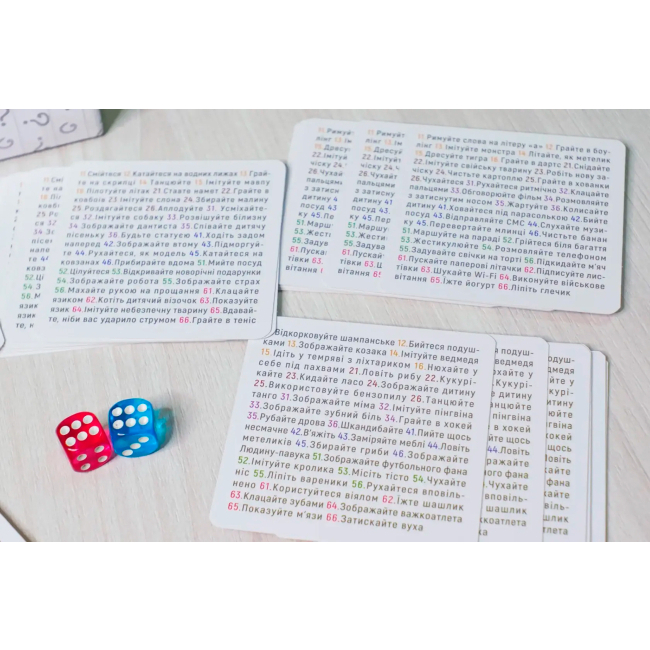 11.Смійтеся 12.Катайтеся на водних лижах 13.Грай-
те на скрипці 14.Танцюйте 15.Імітуйте мавпу
16.Пілотуйте літак 21.Ставте намет 22.Грайте в
ковбоїв 23.Імітуйте слона 24.Збирайте малину
25.Роздягайтеся 26.Аплодуйте 31. Усміхайте-
ся 32.Імітуйте собаку 33.Розвішуйте білизну
34.Зображайте дантиста 35.Співайте дитячу
пісеньку 36.Будьте статуєю 41.Ходіть задом
наперед 42.Зображайте втому 43.Підморгуй-
те 44.Рухайтеся, як модель 45.Катайтеся на
ковзанах 46.Прибирайте вдома 51.Мийте посуд
52.Цілуйтеся 53.Відкривайте новорічні подарунки
54.Зображайте робота 55.Зображайте страх
56.Махайте рукою на прощання 61.Клацайте
язиком 62.Котіть дитячий візочок 63.Показуйте
язик 64.Імітуйте небезпечну тварину 65.Вдавай-
те, ніби вас ударило струмом 66.Грайте в теніс
11.Римуйте слова на літеру «а» 12.Грайте в боу-
лінг 13.Імітуйте монстра 14.Літайте, як метелик
15.Дресуйте тигра 16.Грайте в дартс 21.Снідайте
22.Імітуйте свійську тварину 23.Робіть нову за-
чіску 24.Чистьте картоплю 25.Грайте в хованки
26.Чухайтеся 31.Рухайтеся ритмічно 32.Клацайте
пальцями 33.Обговорюйте фільм 34.Розмовляйте
з затиснутим носом 35.Жартуйте 36.Колисайте
дитину 41.Ховайтеся під парасолькою 42.Бийте
посуд 43.Відправляйте СМС 44.Слухайте музи-
ку 45.Перевертайте млинці 46.Чистьте банан
51.Маршуйте на параді 52.Грійтеся біля багаття
53.Жестикулюйте 54.Розмовляйте телефоном
55.Задувайте свічки на торті 56.Підкидайте м'яч
61.Пускайте паперові літачки 62.Підписуйте лис-
тівки 63.Шукайте Wi-Fi 64.Виконуйте військове
вітання 65.Їжте йогурт 66.Ліпіть глечик
Відкорковуйте шампанське 12.Бийтеся подуш-
ками 13.Зображайте козака 14.Імітуйте ведмедя
15 Ідіть у темряві з ліхтариком 16.Нюхайте у
себе під пахвами 21.Ловіть рибу 22.Кукурі-
кайте 23.Кидайте ласо 24.Зображайте дитину
25.Використовуйте бензопилу 26.Танцюйте
танго 31.Зображайте міма 32.Імітуйте пінгвіна
33.Зображайте зубний біль 34.Грайте в хокей
35.Рубайте дрова 36.Шкандибайте 41.Пийте щось
несмачне 42.В'яжіть 43.Заміряйте меблі 44.Ловіть
метеликів 45.Збирайте гриби 46.Зображайте
Людину-павука 51.Зображуйте футбольного фана
52.Імітуйте кролика 53.Місіть тісто 54.Чухайте
ніс 55.Ліпіть вареники 56.Рухайтеся вповіль-
нено 61.Користуйтеся віялом 62.Їжте шашлик
63.Клацайте зубами 64.Зображайте важкоатлета
65.Показуйте м'язи 66.Затискайте вуха